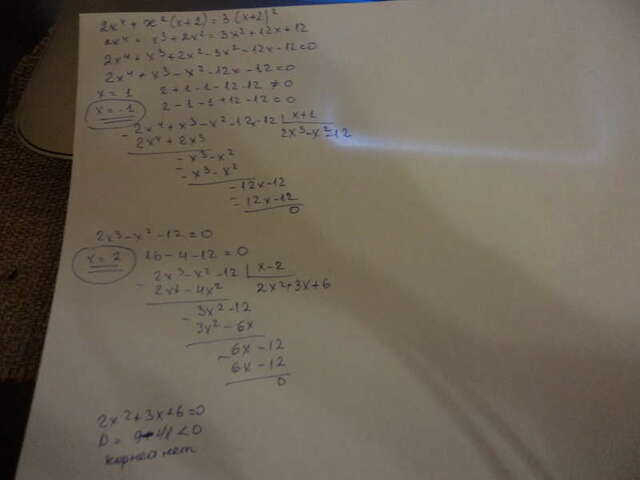 2x⁴ + x²(x+2) = 3(x+2)²
2x⁴ + x³ + 2x² = 3x² + 12x + 12
2x⁴ + x³ + 2x² - 3x² - 12x - 12 = 0
2x⁴ + x³ - x² - 12x - 12 = 0
x = 1 2 + 1 - 1 - 12 - 12 ≠ 0
x = -1 2 - 1 - 1 + 12 - 12 = 0
- 2x⁴ + x³ - x² - 12x - 12 | x+1
2x⁴ + 2x³ 2x³ - x² - 12
- x³ - x²
- x³ - x²
- 12x - 12
- 12x - 12
0
2x³ - x² - 12 = 0
x = 2 16 - 4 - 12 = 0
- 2x³ - x² - 12 | x - 2
2x³ - 4x² 2x² + 3x + 6
- 3x² - 12
3x² - 6x
- 6x - 12
6x - 12
0
2x² + 3x + 6 = 0
D = 9 - 48 < 0
корней нет